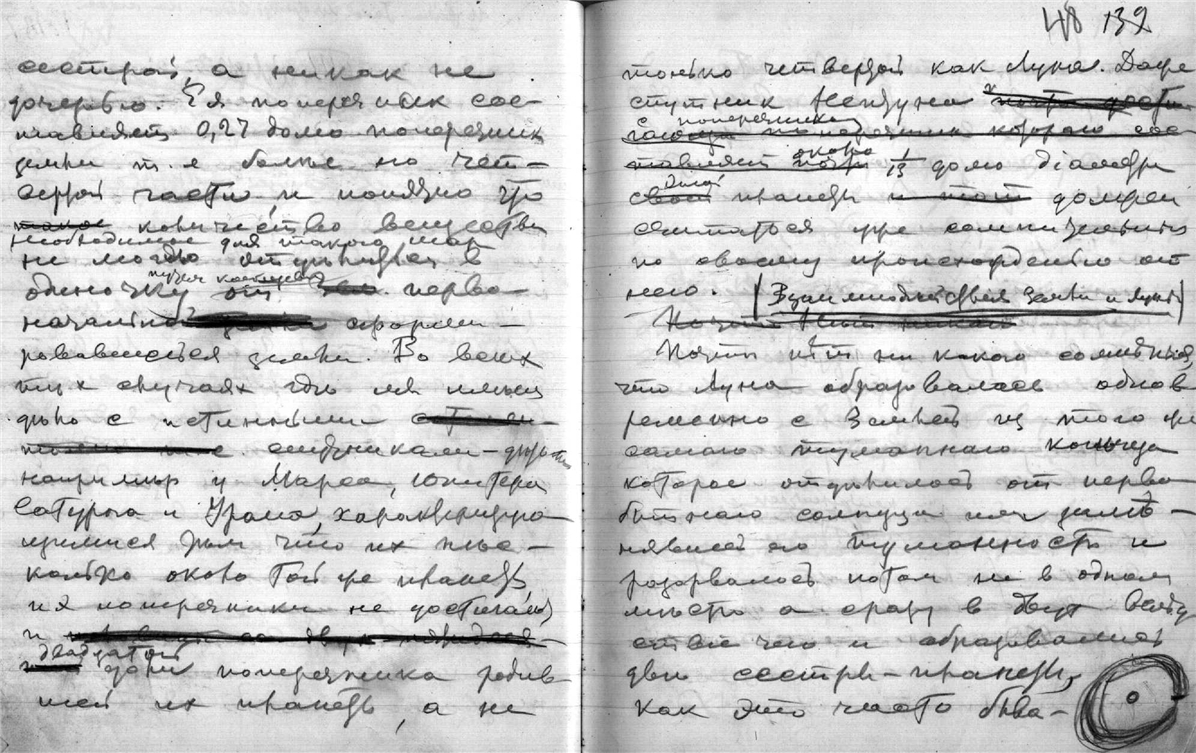 сестрой, а никак не
дочерью. Ея поперечник сос-
тавляетъ 0,27 долю поперечника
земли т. е больше но чет-
вертой части, и понятно что
количество вещества
необходимое для такого шара
не могло отделиться в
одиночку перво-
начально сформи-
ровавшейся земли. Во всех
тех случаях где мы имеем
дело с истинными
спутниками-
например у Марса, Юпитера
Сатурна и Урана, характеризую-
щимися тем что их несколько
колько около той же планеты
их поперечники не достигают
и
двадцатой
доли поперечника родив-
шей их планеты, а не
48 132
только четвертой как Луна. Даже
спутник Нептуна
с поперечником
около 1/13 долю діаметра
своей планеты должен
считаться уже сомнительным
по своему происхождению от
него. (Взаимной связи Земли и Луны)
Почти нет никакого сомнения,
что Луна образовалась однов
ременно с Землей из того же
самого туманного кольца
которое отделилось от перво
бытного солнца или заме-
нявшей его туманности и
разорвалось потом не в одном
месте а сразу в двух вслед
ствие чего и образовались
две сестры-планеты,
как это часто быва-